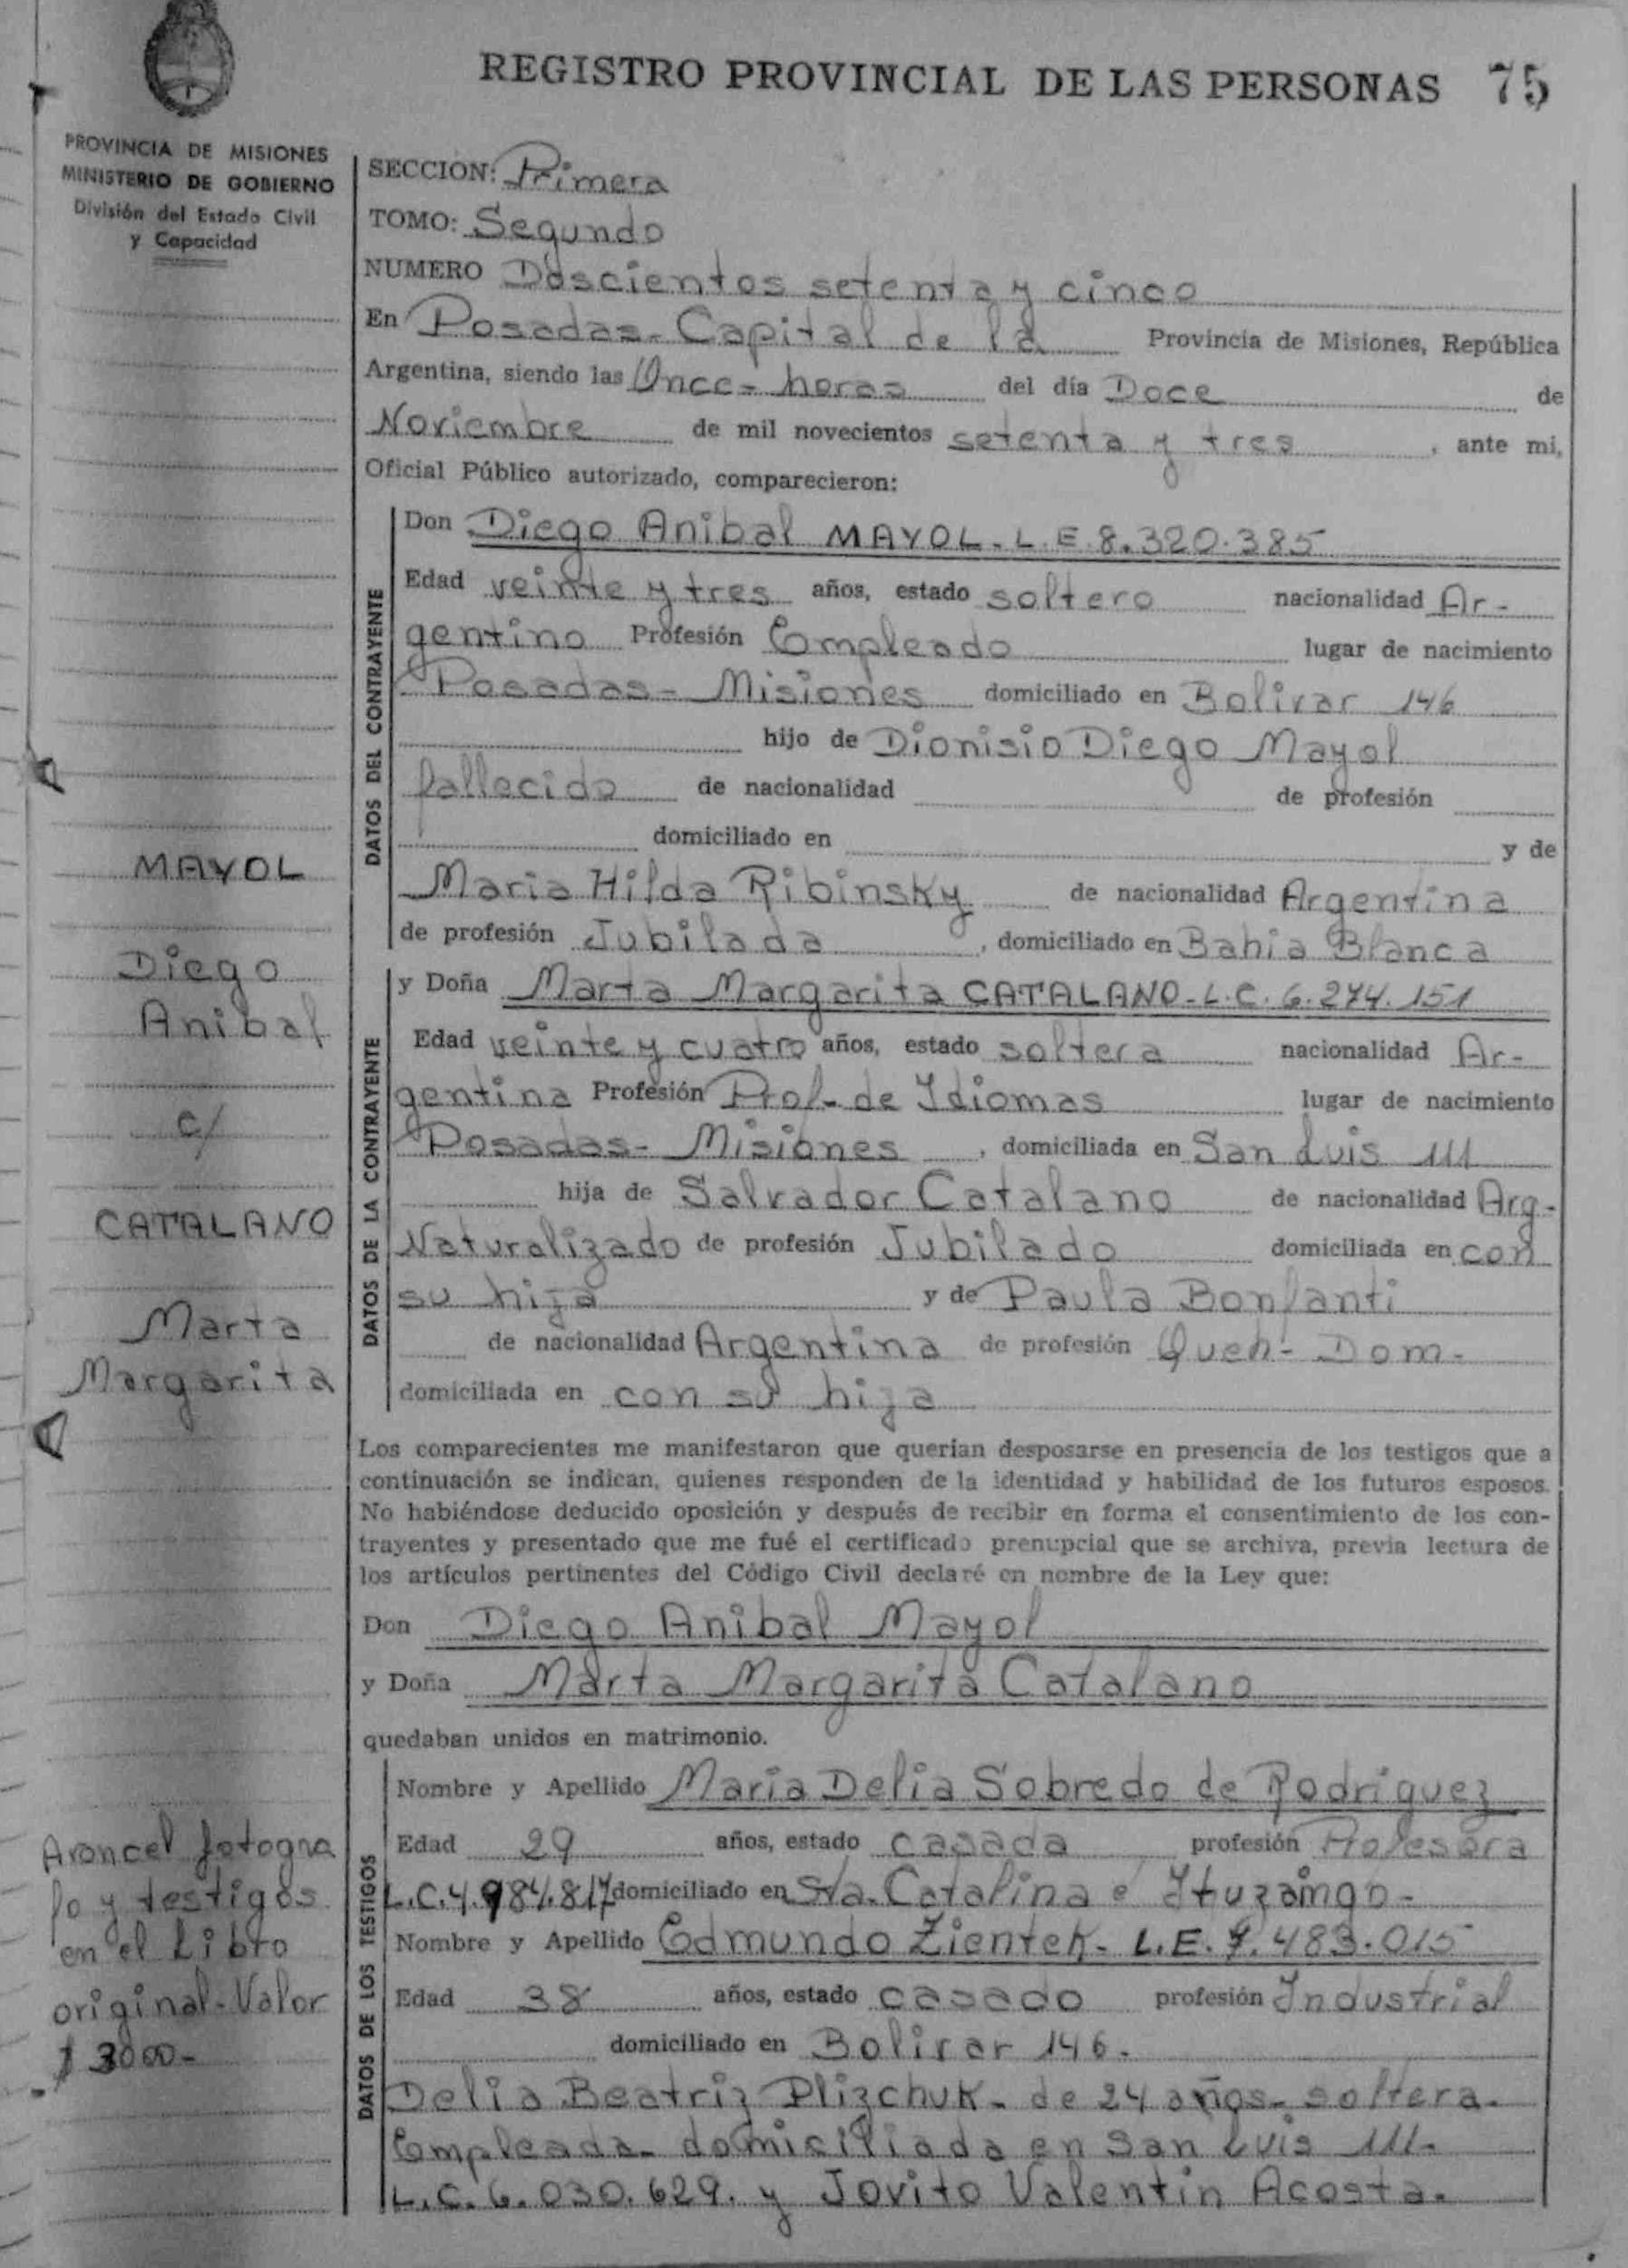 REGISTRO PROVINCIAL DE LAS PERSONAS 75
PROVINCIA DE MISIONES
MINISTERIO DE GOBIERNO
División del Estado Civil
y Capacidad
SECCION: Primera
TOMO: Segundo
NUMERO Doscientos setenta y cinco
En Posadas - Capital de la Provincia de Misiones, República
Argentina, siendo las Once - horas del día Doce de
Noviembre de mil novecientos setenta y tres, ante mi,
Oficial Público autorizado, comparecieron:
DATOS DEL CONTRAYENTE
Don Diego Anibal MAYOL - L.E. 8.320.385
Edad veinte y tres años, estado soltero nacionalidad Ar-
gentino Profesión Empleado lugar de nacimiento
Posadas - Misiones domiciliado en Bolivar 146
hijo de Dionisio Diego Mayol
fallecido de nacionalidad de profesión
domiciliado en y de
Maria Hilda Ribinsky de nacionalidad Argentina
de profesión Jubilada, domiciliado en Bahia Blanca
DATOS DE LA CONTRAYENTE
y Doña Marta Margarita CATALANO - L.C. 6.274.151
Edad veinte y cuatro años, estado soltera nacionalidad Ar-
gentina Profesión Prof. de Idiomas lugar de nacimiento
Posadas - Misiones, domiciliada en San Luis 111
hija de Salvador Catalano de nacionalidad Arg-
Naturalizado de profesión Jubilado domiciliada en con
su hija y de Paula Bonfanti
de nacionalidad Argentina de profesión Queh- Dom-
domiciliada en con su hija
Los comparecientes me manifestaron que querían desposarse en presencia de los testigos que a
continuación se indican, quienes responden de la identidad y habilidad de los futuros esposos.
No habiéndose deducido oposición y después de recibir en forma el consentimiento de los con-
trayentes y presentado que me fué el certificado prenupcial que se archiva, previa lectura de
los artículos pertinentes del Código Civil declaré en nombre de la Ley que:
Don Diego Anibal Mayol
y Doña Marta Margarita Catalano
quedaban unidos en matrimonio.
DATOS DE LOS TESTIGOS
Nombre y Apellido Maria Delia Sobredo de Rodriguez
Edad 29 años, estado casada profesión Profesora
L.C. 4.984.817 domiciliado en Sta. Catalina é Ituzaingo -
Nombre y Apellido Edmundo Zientek - L.E. 483.015
Edad 38 años, estado casado profesión Industrial
domiciliado en Bolivar 146.
Delia Beatriz Plizchuk - de 24 años - soltera -
Empleada - domiciliada en San Luis 111 -
L.C. 6.030.629. y Jovito Valentin Acosta.
MAYOL
Diego
Anibal
c/
CATALANO
Marta
Margarita
Arancel fotogra
fo y testigos
en el Libro
original - Valor
$ 3000 -